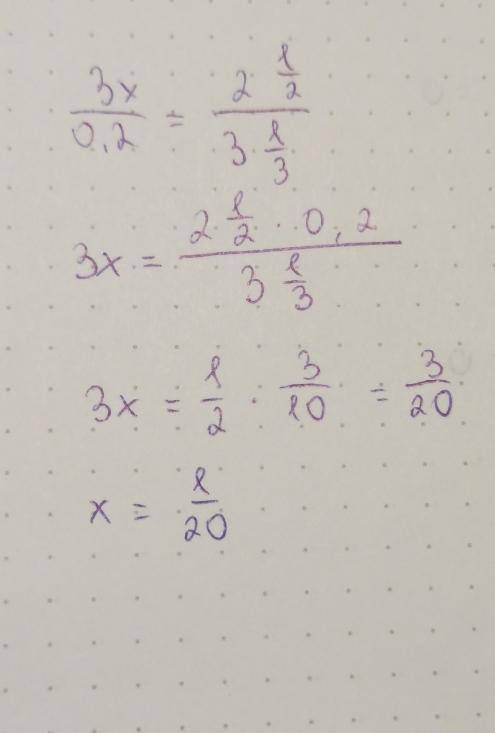 3x/0,2 = 2 1/2 / 3 1/3
3x = 2 1/2 · 0,2 / 3 1/3
3x = 1/2 · 3/10 = 3/20
x = 1/20